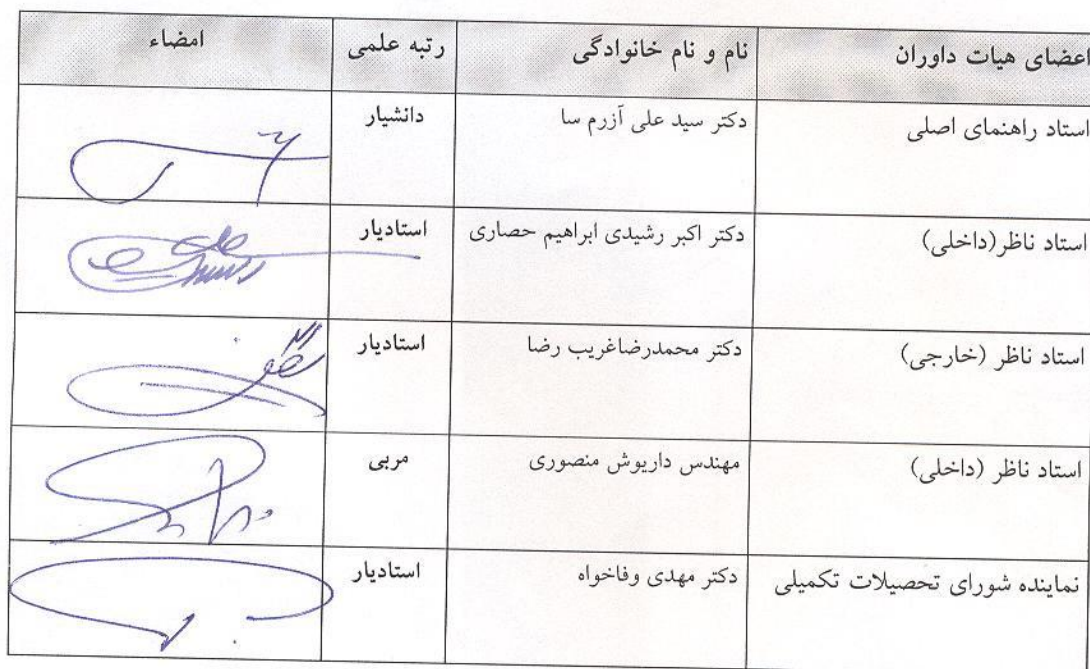 اعضای هیات داوران	نام و نام خانوادگی	رتبه علمی	امضاء
استاد راهنمای اصلی	دکتر سید علی آزرم سا	دانشیار
استاد ناظر(داخلی)	دکتر اکبر رشیدی ابراهیم حصاری	استادیار
استاد ناظر (خارجی)	دکتر محمدرضاغریب رضا	استادیار
استاد ناظر (داخلی)	مهندس داریوش منصوری	مربی
نماینده شورای تحصیلات تکمیلی	دکتر مهدی وفاخواه	استادیار